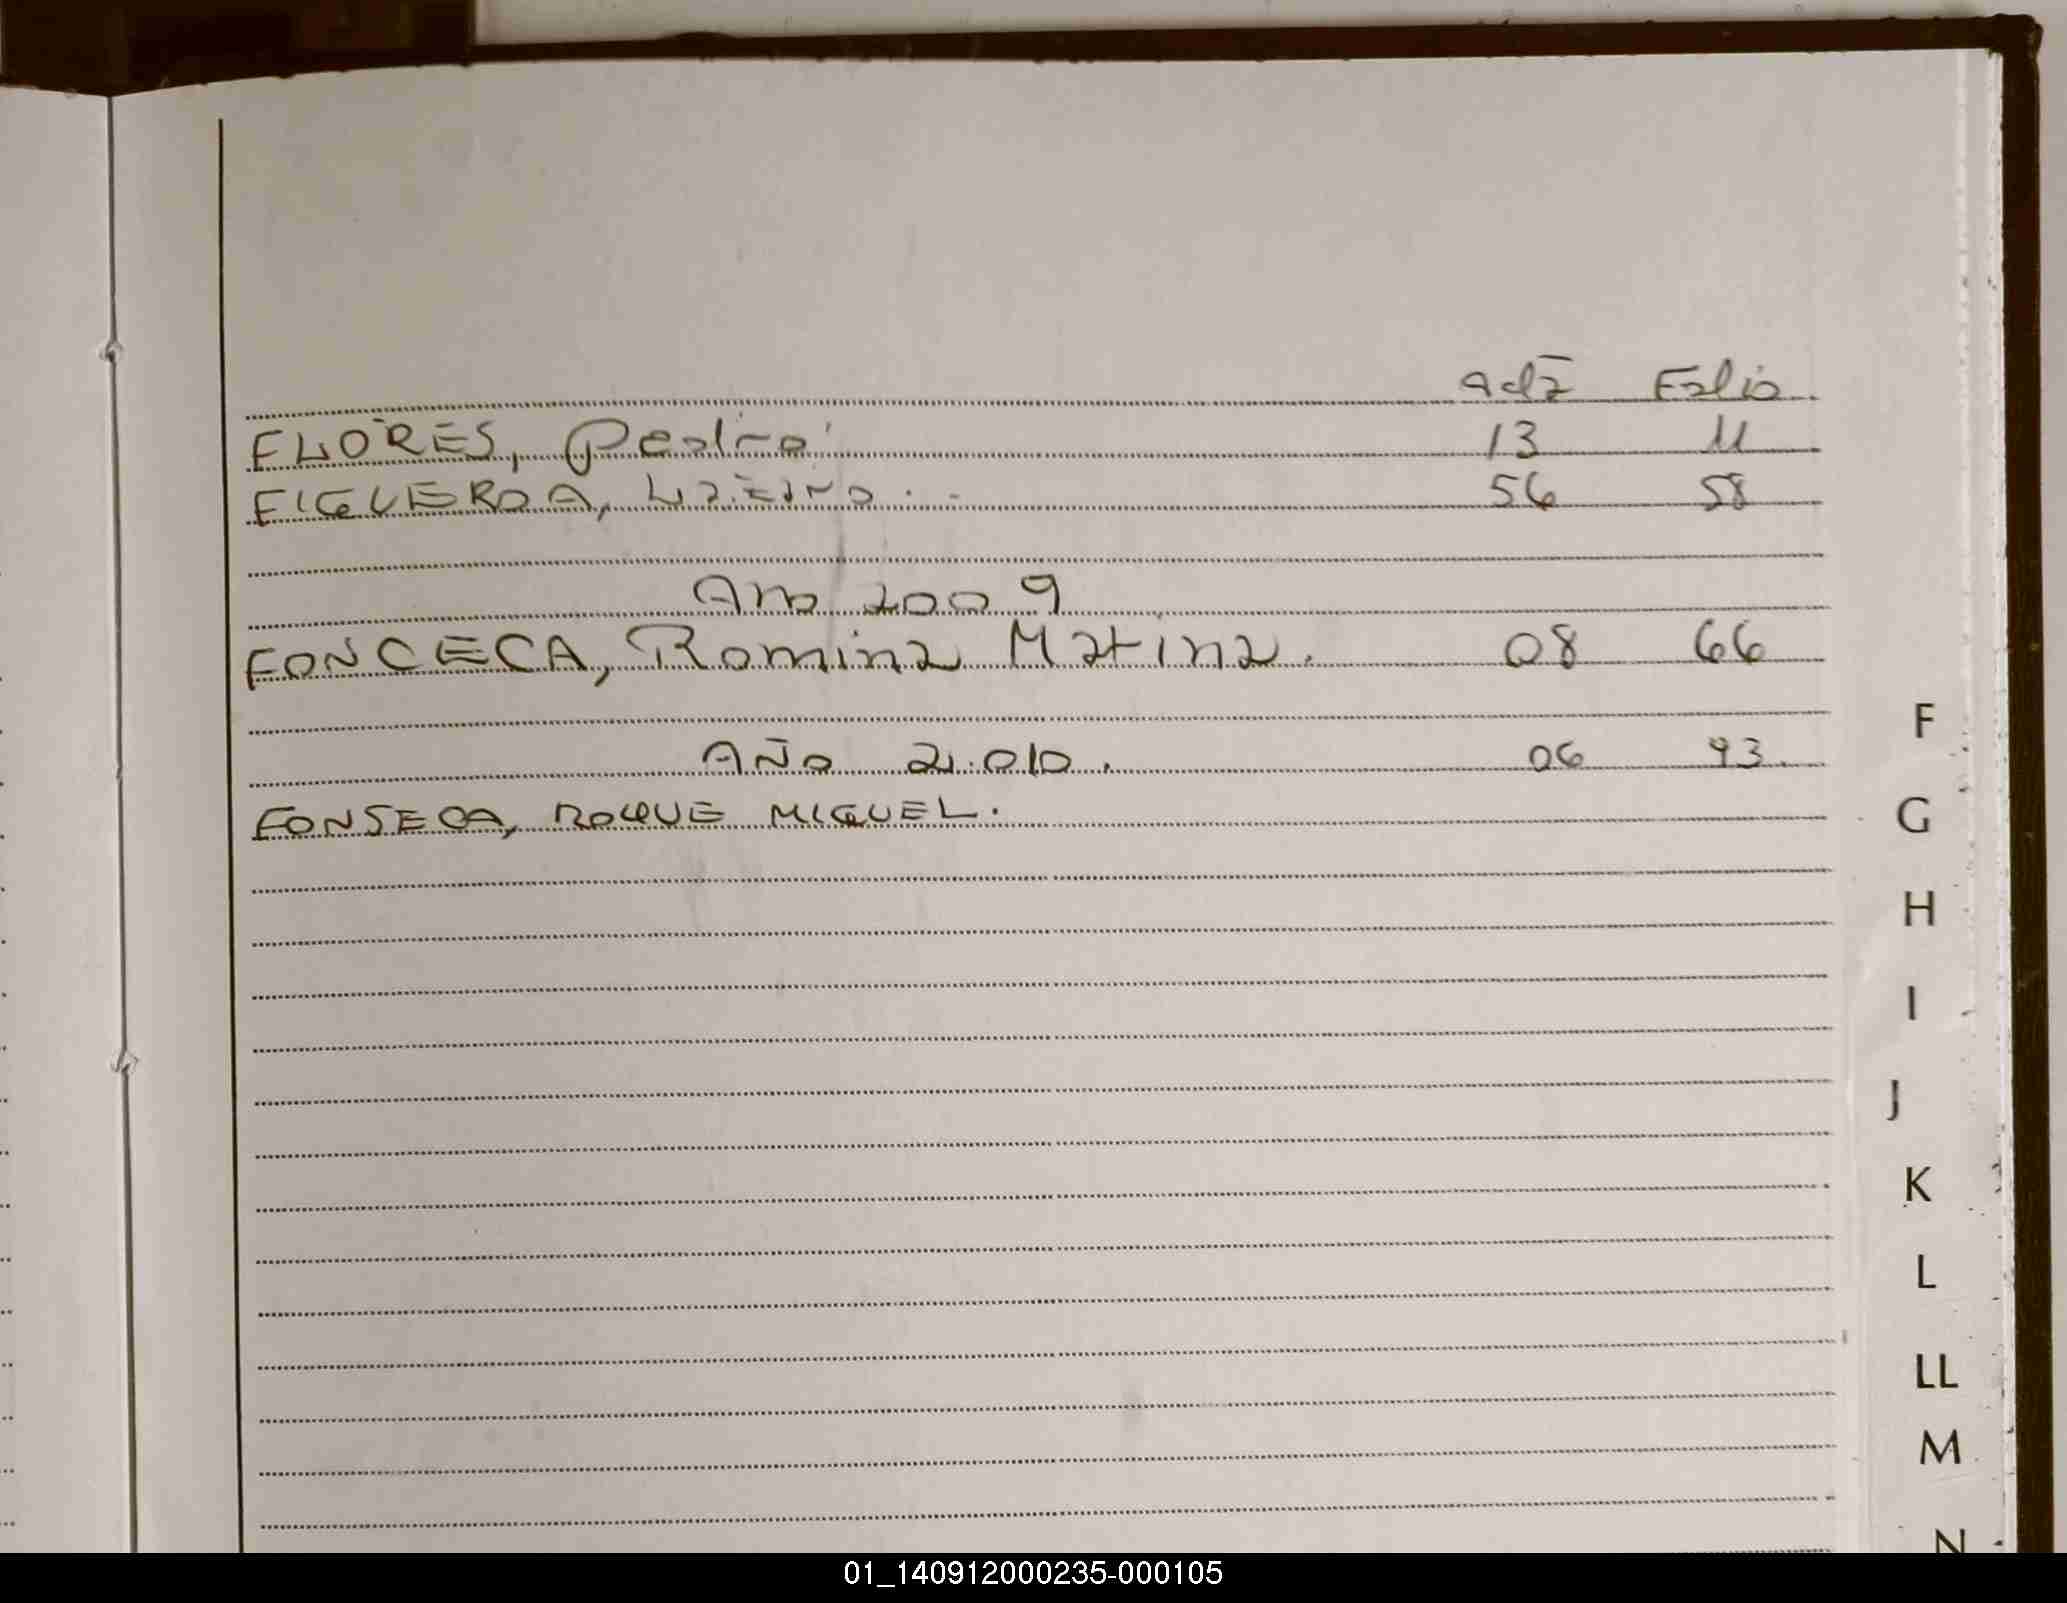 Acta Folio
FLORES, Pedro 13 11
FIGUEROA, Lázaro 56 58
Año 2009
FONCECA, Romina Marina. 08 66
AÑO 2.010. 06 93
FONSECA, ROQUE MIGUEL.
F
G
H
I
J
K
L
LL
M
N
01_140912000235-000105